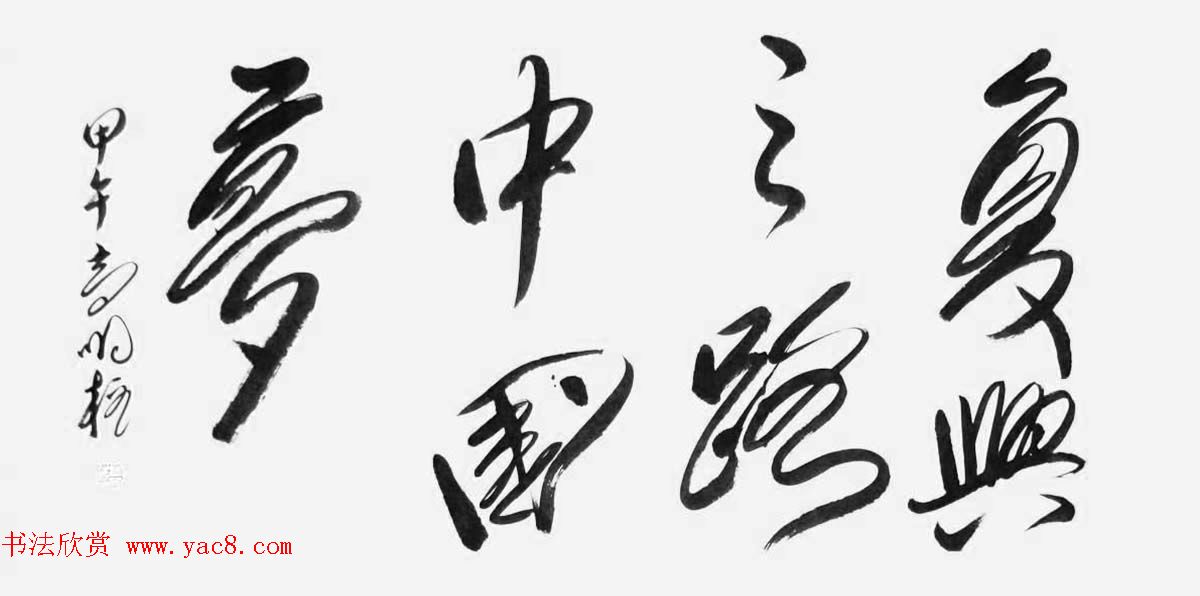 复興
之路
中國
夢
甲午高明柱
书法欣赏 www.yac8.com